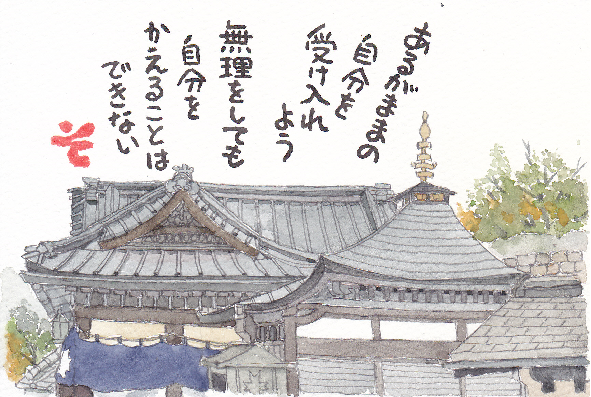 あるがままの
自分を
受け入れ
よう
無理をしても
自分を
かえることは
できない
そ